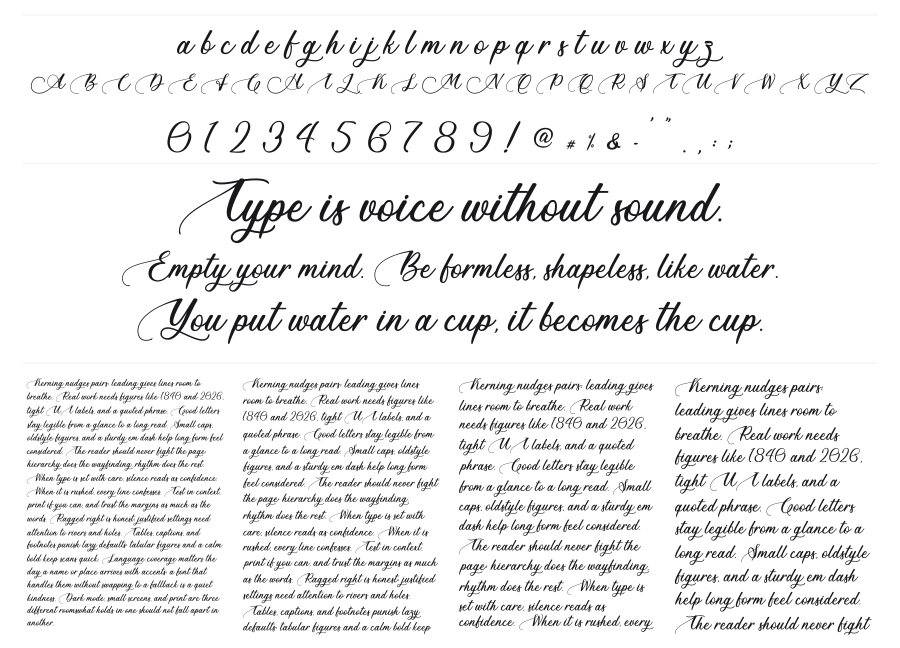 a b c d e f g h i j k l m n o p q r s t u v w x y z
A B C D E F G H I J K L M N O P Q R S T U V W X Y Z
0 1 2 3 4 5 6 7 8 9 ! @ # % & - ' " . , : ;
Type is voice without sound.
Empty your mind. Be formless, shapeless, like water.
You put water in a cup, it becomes the cup.
Kerning nudges pairs. leading gives lines room to
breathe. Real work needs figures like 1840 and 2026,
tight UI labels, and a quoted phrase. Good letters
stay legible from a glance to a long read. Small caps,
oldstyle figures, and a sturdy em dash help long form feel
considered. The reader should never fight the page
hierarchy does the wayfinding, rhythm does the rest.
When type is set with care, silence reads as confidence.
When it is rushed, every line confesses. Test in context,
print if you can, and trust the margins as much as the
words. Ragged right is honest justified settings need
attention to rivers and holes. Tables, captions, and
footnotes punish lazy defaults tabular figures and a calm
bold keep scans quick. Language coverage matters the
day a name or place arrives with accents a font that
handles them without swapping to a fallback is a quiet
kindness. Dark mode, small screens, and print are three
different rooms what holds in one should not fall apart in
another.
Kerning nudges pairs. leading gives lines
room to breathe. Real work needs figures like
1840 and 2026, tight UI labels, and a
quoted phrase. Good letters stay legible from
a glance to a long read. Small caps, oldstyle
figures, and a sturdy em dash help long form
feel considered. The reader should never fight
the page hierarchy does the wayfinding,
rhythm does the rest. When type is set with
care, silence reads as confidence. When it is
rushed, every line confesses. Test in context,
print if you can, and trust the margins as much
as the words. Ragged right is honest justified
settings need attention to rivers and holes.
Tables, captions, and footnotes punish lazy
defaults tabular figures and a calm bold keep
Kerning nudges pairs. leading gives
lines room to breathe. Real work
needs figures like 1840 and 2026,
tight UI labels, and a quoted
phrase. Good letters stay legible
from a glance to a long read. Small
caps, oldstyle figures, and a sturdy em
dash help long form feel considered.
The reader should never fight the
page hierarchy does the wayfinding,
rhythm does the rest. When type is
set with care, silence reads as
confidence. When it is rushed, every
Kerning nudges pairs.
leading gives lines room to
breathe. Real work needs
figures like 1840 and 2026,
tight UI labels, and a
quoted phrase. Good letters
stay legible from a glance to a
long read. Small caps, oldstyle
figures, and a sturdy em dash
help long form feel considered.
The reader should never fight